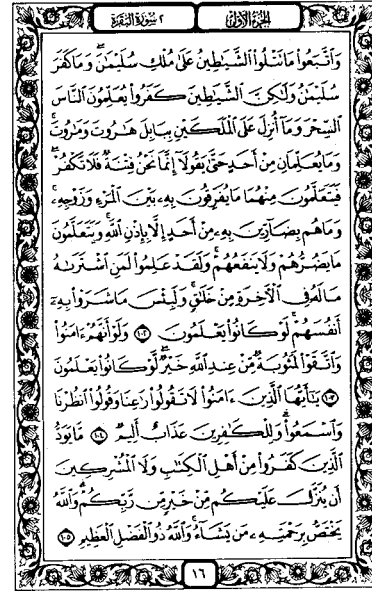 الجزء الأول ٢ سورة البقرة
وَٱتَّبَعُوا۟ مَا تَتْلُوا۟ ٱلشَّيَـٰطِينُ عَلَىٰ مُلْكِ سُلَيْمَـٰنَ ۖ وَمَا كَفَرَ
سُلَيْمَـٰنُ وَلَـٰكِنَّ ٱلشَّيَـٰطِينَ كَفَرُوا۟ يُعَلِّمُونَ ٱلنَّاسَ
ٱلسِّحْرَ وَمَآ أُنزِلَ عَلَى ٱلْمَلَكَيْنِ بِبَابِلَ هَـٰرُوتَ وَمَـٰرُوتَ ۚ
وَمَا يُعَلِّمَانِ مِنْ أَحَدٍ حَتَّىٰ يَقُولَآ إِنَّمَا نَحْنُ فِتْنَةٌ فَلَا تَكْفُرْ ۖ
فَيَتَعَلَّمُونَ مِنْهُمَا مَا يُفَرِّقُونَ بِهِۦ بَيْنَ ٱلْمَرْءِ وَزَوْجِهِۦ ۚ
وَمَا هُم بِضَآرِّينَ بِهِۦ مِنْ أَحَدٍ إِلَّا بِإِذْنِ ٱللَّهِ ۚ وَيَتَعَلَّمُونَ
مَا يَضُرُّهُمْ وَلَا يَنفَعُهُمْ ۚ وَلَقَدْ عَلِمُوا۟ لَمَنِ ٱشْتَرَىٰهُ
مَا لَهُۥ فِى ٱلْـَٔاخِرَةِ مِنْ خَلَـٰقٍ ۚ وَلَبِئْسَ مَا شَرَوْا۟ بِهِۦٓ
أَنفُسَهُمْ ۚ لَوْ كَانُوا۟ يَعْلَمُونَ ١٠٢ وَلَوْ أَنَّهُمْ ءَامَنُوا۟
وَٱتَّقَوْا۟ لَمَثُوبَةٌ مِّنْ عِندِ ٱللَّهِ خَيْرٌ ۖ لَّوْ كَانُوا۟ يَعْلَمُونَ
١٠٣ يَـٰٓأَيُّهَا ٱلَّذِينَ ءَامَنُوا۟ لَا تَقُولُوا۟ رَٰعِنَا وَقُولُوا۟ ٱنظُرْنَا
وَٱسْمَعُوا۟ ۗ وَلِلْكَـٰفِرِينَ عَذَابٌ أَلِيمٌ ١٠٤ مَّا يَوَدُّ
ٱلَّذِينَ كَفَرُوا۟ مِنْ أَهْلِ ٱلْكِتَـٰبِ وَلَا ٱلْمُشْرِكِينَ
أَن يُنَزَّلَ عَلَيْكُم مِّنْ خَيْرٍ مِّن رَّبِّكُمْ ۗ وَٱللَّهُ
يَخْتَصُّ بِرَحْمَتِهِۦ مَن يَشَآءُ ۚ وَٱللَّهُ ذُو ٱلْفَضْلِ ٱلْعَظِيمِ ١٠٥
١٦